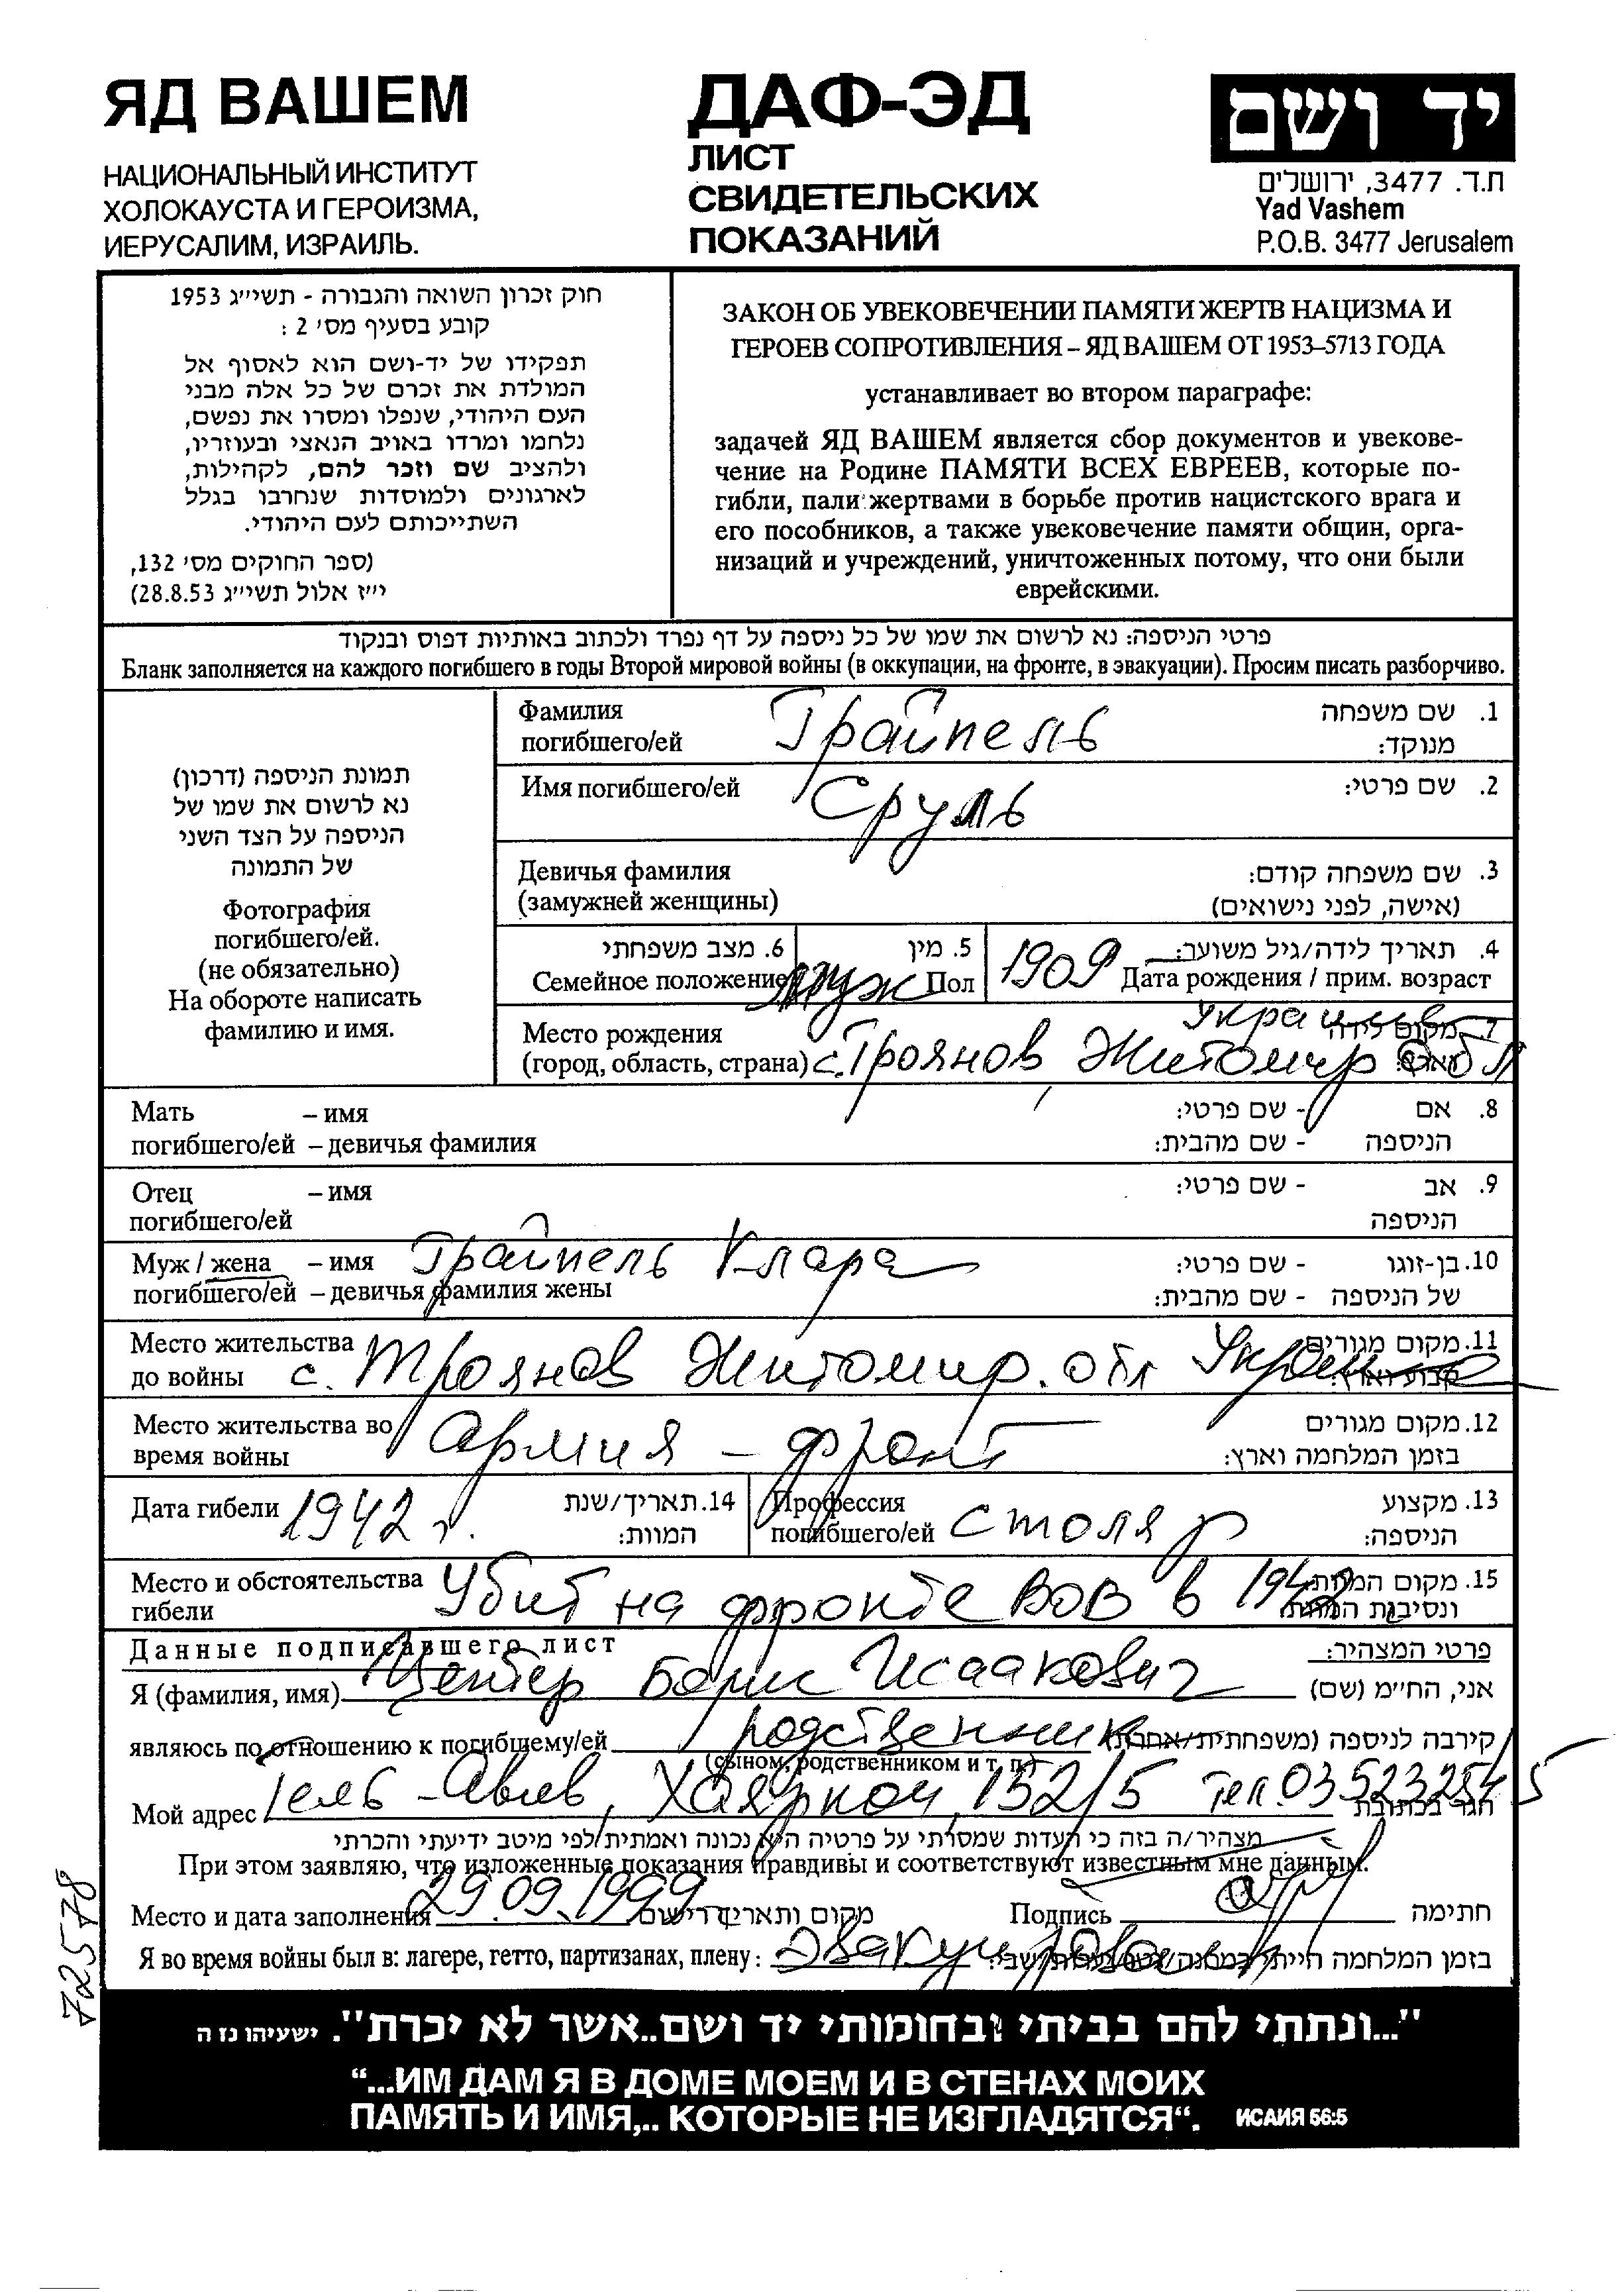 ЯД ВАШЕМ
НАЦИОНАЛЬНЫЙ ИНСТИТУТ
ХОЛОКАУСТА И ГЕРОИЗМА,
ИЕРУСАЛИМ, ИЗРАИЛЬ.
ДАФ-ЭД
ЛИСТ
СВИДЕТЕЛЬСКИХ
ПОКАЗАНИЙ
יד ושם
ת.ד. 3477, ירושלים
Yad Vashem
P.O.B. 3477 Jerusalem
חוק זכרון השואה והגבורה - תשי״ג 1953
קובע בסעיף מס׳ 2 :
תפקידו של יד-ושם הוא לאסוף אל
המולדת את זכרם של כל אלה מבני
העם היהודי, שנפלו ומסרו את נפשם,
נלחמו ומרדו באויב הנאצי ובעוזריו,
ולהציב שם וזכר להם, לקהילות,
לארגונים ולמוסדות שנחרבו בגלל
השתייכותם לעם היהודי.
(ספר החוקים מס׳ 132,
י״ז אלול תשי״ג 28.8.53)
ЗАКОН ОБ УВЕКОВЕЧЕНИИ ПАМЯТИ ЖЕРТВ НАЦИЗМА И
ГЕРОЕВ СОПРОТИВЛЕНИЯ – ЯД ВАШЕМ ОТ 1953–5713 ГОДА
устанавливает во втором параграфе:
задачей ЯД ВАШЕМ является сбор документов и увекове-
чение на Родине ПАМЯТИ ВСЕХ ЕВРЕЕВ, которые по-
гибли, пали жертвами в борьбе против нацистского врага и
его пособников, а также увековечение памяти общин, орга-
низаций и учреждений, уничтоженных потому, что они были
еврейскими.
פרטי הניספה: נא לרשום את שמו של כל ניספה על דף נפרד ולכתוב באותיות דפוס ובנקוד
Бланк заполняется на каждого погибшего в годы Второй мировой войны (в оккупации, на фронте, в эвакуации). Просим писать разборчиво.
תמונת הניספה (דרכון)
נא לרשום את שמו של
הניספה על הצד השני
של התמונה
Фотография
погибшего/ей.
(не обязательно)
На обороте написать
фамилию и имя.
Фамилия Грайпель 1. שם משפחה
погибшего/ей מנוקד:
Имя погибшего/ей Сруль 2. שם פרטי:
Девичья фамилия 3. שם משפחה קודם:
(замужней женщины) (אישה, לפני נישואים)
6. מצב משפחתי 5. מין 4. תאריך לידה/גיל משוער:
Семейное положение муж Пол 1909 Дата рождения / прим. возраст
Место рождения Украина 7. מקום לידה
(город, область, страна) с. Троянов, Житомир обл
Мать – имя 8. אם - שם פרטי:
погибшего/ей – девичья фамилия הניספה - שם מהבית:
Отец – имя 9. אב - שם פרטי:
погибшего/ей הניספה
Муж / жена – имя Грайпель Клара 10. בן-זוגו - שם פרטי:
погибшего/ей – девичья фамилия жены של הניספה - שם מהבית:
Место жительства 11. מקום מגורים
до войны с. Троянов Житомир. обл Украина קבוע וארץ:
Место жительства во Армия – фронт 12. מקום מגורים
время войны בזמן המלחמה וארץ:
Дата гибели 1942 г. 14. תאריך/שנת המוות:
Профессия 13. מקצוע
погибшего/ей столяр הניספה:
Место и обстоятельства Убит на фронте ВОВ в 1942 15. מקום המוות
гибели ונסיבות המוות:
Данные подписавшего лист פרטי המצהיר:
Я (фамилия, имя) Центер Борис Исаакович אני, החי״מ (שם)
являюсь по отношению к погибшему/ей родственник קירבה לניספה (משפחתית/אחרת)
(сыном, родственником и т. п.)
Мой адрес Тель-Авив, Хаяркон, 152/5 тел. 03 5232545 הגר בכתובת
מצהיר/ה בזה כי העדות שמסרתי על פרטיה היא נכונה ואמתית/לפי מיטב ידיעתי והכרתי
При этом заявляю, что изложенные показания правдивы и соответствуют известным мне данным.
Место и дата заполнения 29.09.1999 מקום ותאריך רישום Подпись חתימה
Я во время войны был в: лагере, гетто, партизанах, плену: Эвакуирован בזמן המלחמה הייתי
725578
"...ונתתי להם בביתי ובחומותי יד ושם..אשר לא יכרת". ישעיהו נז ה
“...ИМ ДАМ Я В ДОМЕ МОЕМ И В СТЕНАХ МОИХ
ПАМЯТЬ И ИМЯ,.. КОТОРЫЕ НЕ ИЗГЛАДЯТСЯ“. ИСАИЯ 56:5